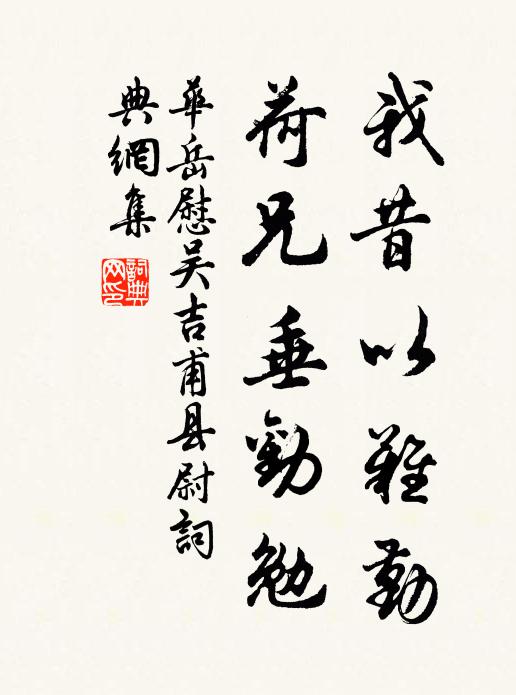 我昔以難勤
荷兄垂勸勉
華岳慰吳吉甫县尉詞
典網集
詞典网印